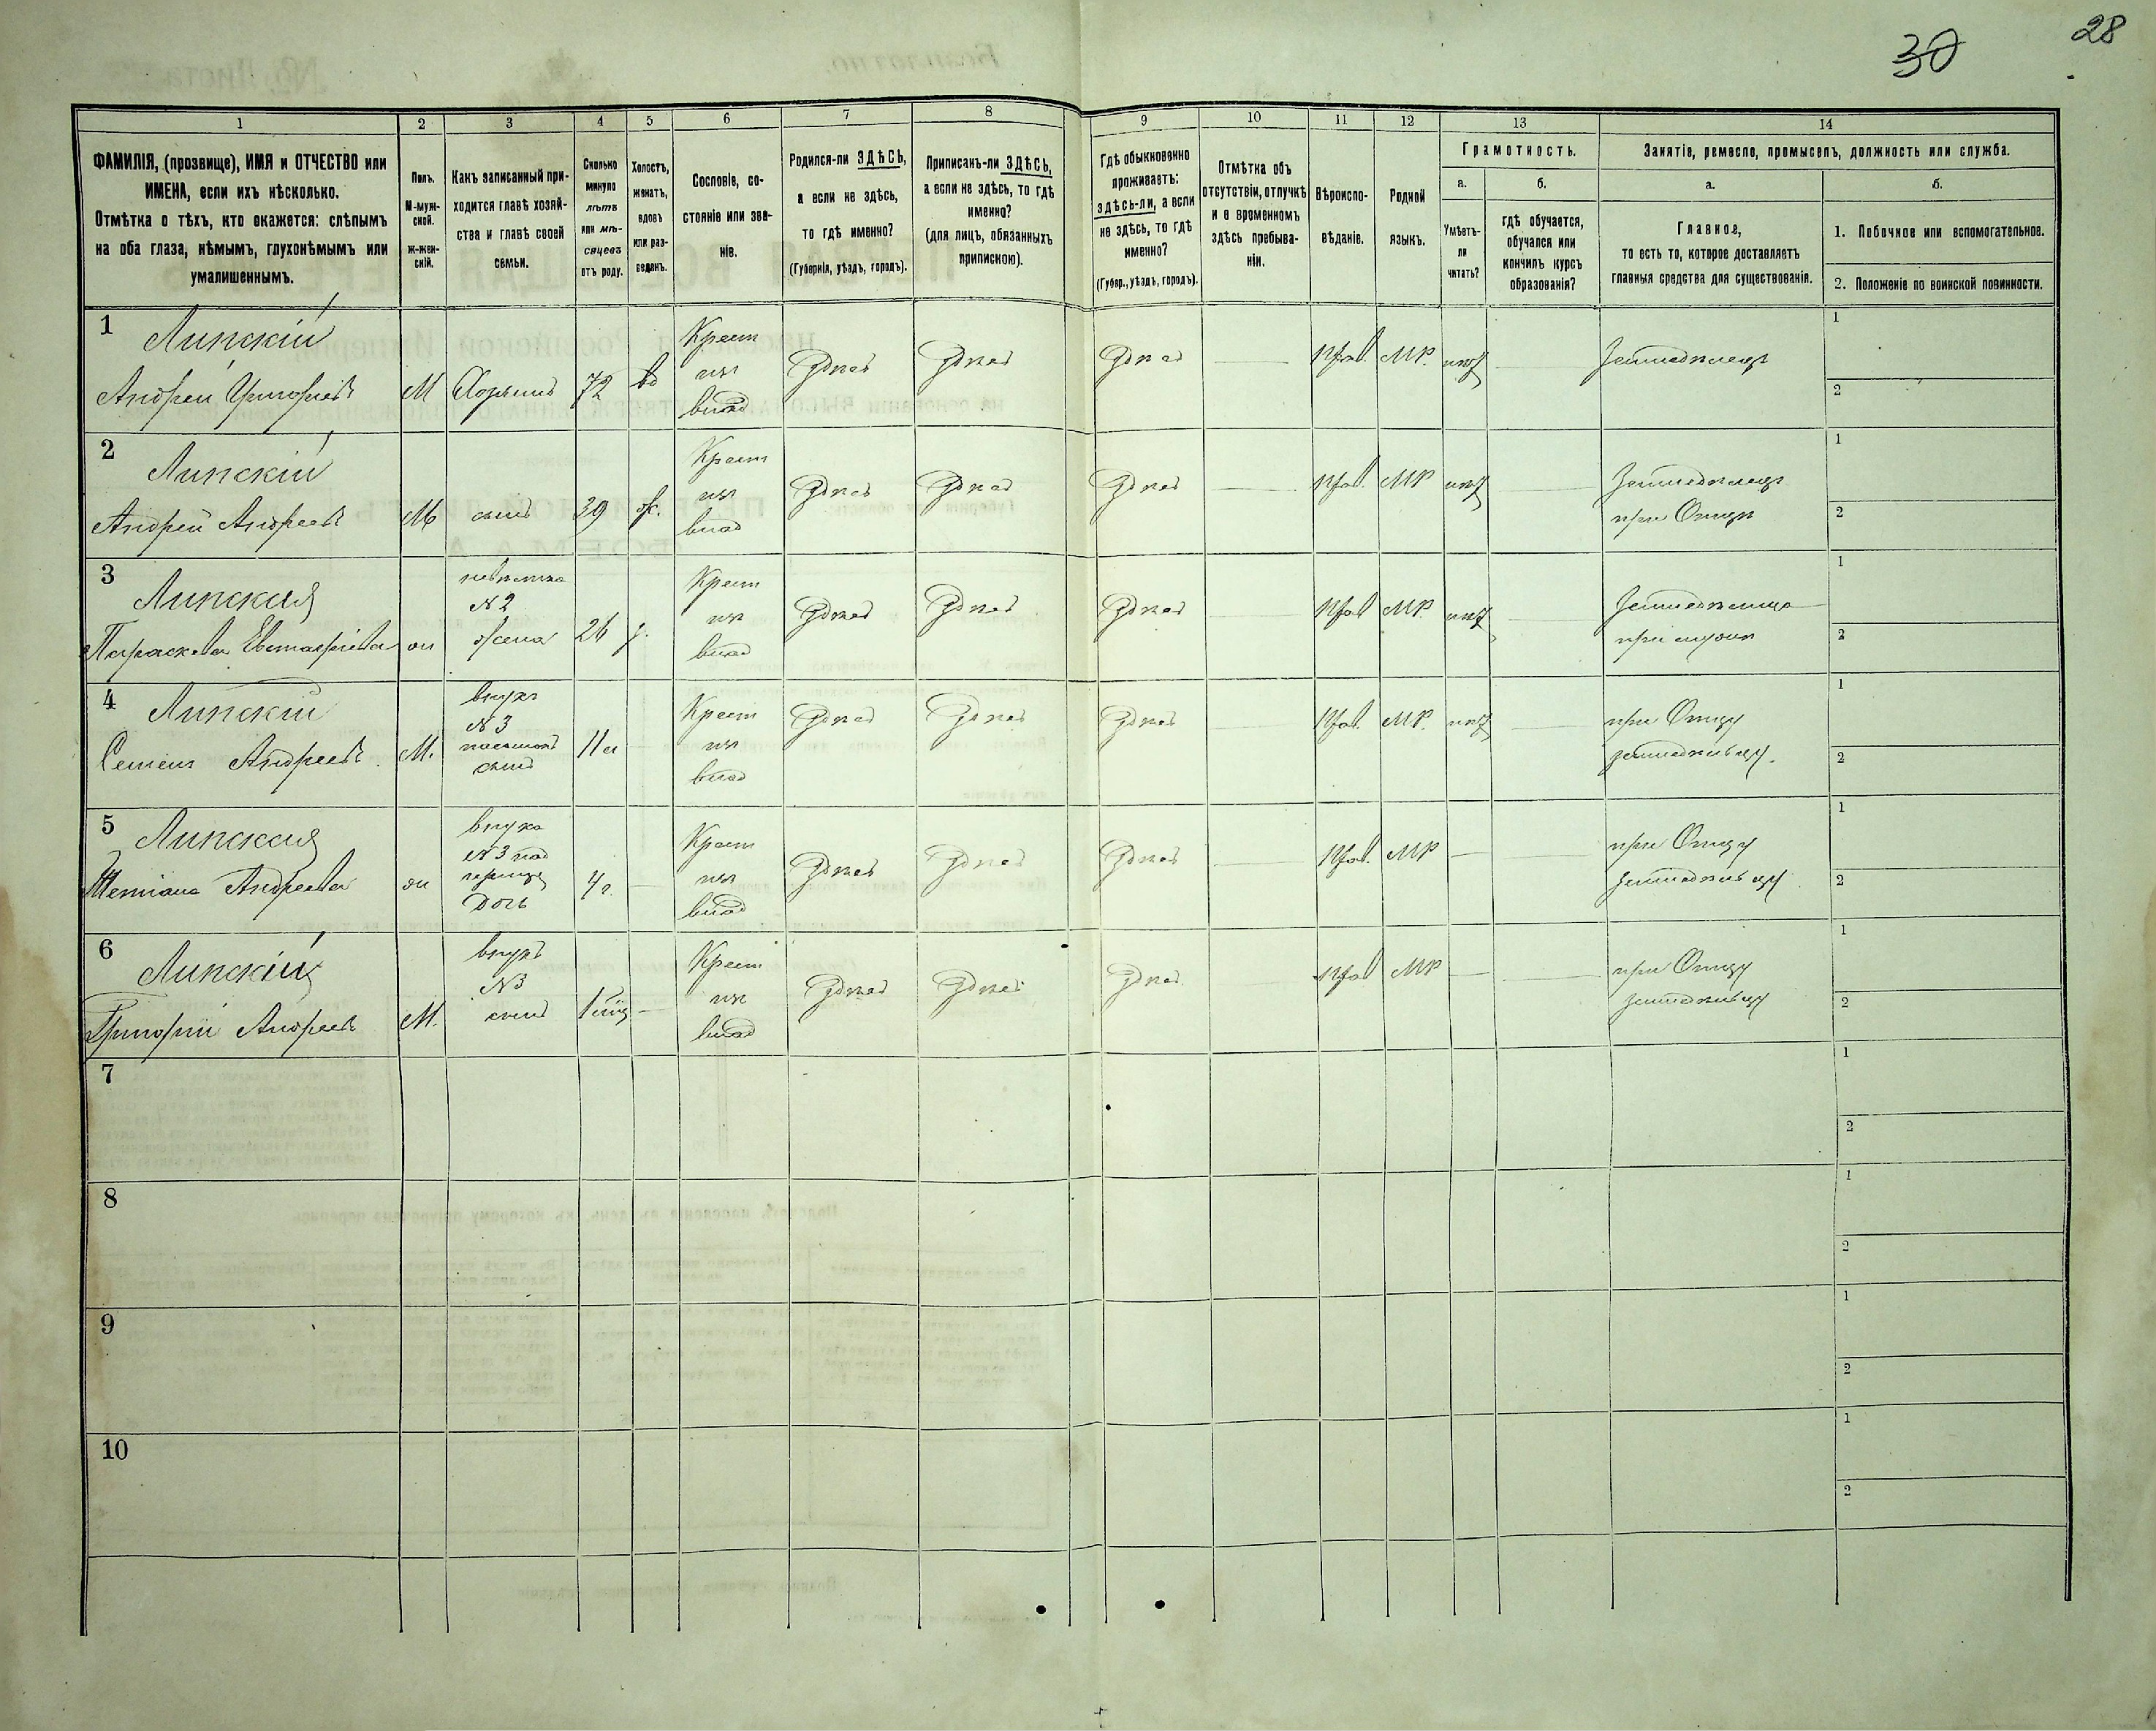 30
28
1
2
3
4
5
6
7
8
9
10
11
12
13
14
ФАМИЛІЯ, (прозвище), ИМЯ и ОТЧЕСТВО или
ИМЕНА, если ихъ нѣсколько.
Отмѣтка о тѣхъ, кто окажется: слѣпымъ
на оба глаза, нѣмымъ, глухонѣмымъ или
умалишеннымъ.
Полъ.
М-муж-
ской.
Ж-жен-
скій.
Какъ записанный при-
ходится главѣ хозяй-
ства и главѣ своей
семьи.
Сколько
минуло
лѣтъ
или мѣ-
сяцевъ
отъ роду.
Холостъ,
женатъ,
вдовъ
или раз-
веденъ.
Сословіе, со-
стояніе или зва-
ніе.
Родился-ли ЗДѢСЬ,
а если не здѣсь,
то гдѣ именно?
(Губернія, уѣздъ, городъ).
Приписанъ-ли ЗДѢСЬ,
а если не здѣсь, то гдѣ
именно?
(для лицъ, обязанныхъ
припискою).
Гдѣ обыкновенно
проживаетъ:
здѣсь-ли, а если
не здѣсь, то гдѣ
именно?
(Губер., уѣздъ, городъ).
Отмѣтка объ
отсутствіи, отлучкѣ
и о временномъ
здѣсь пребыва-
ніи.
Вѣроиспо-
вѣданіе.
Родной
языкъ.
Грамотность.
а.
Умѣетъ-
ли
читать?
б.
гдѣ обучается,
обучался или
кончилъ курсъ
образованія?
Занятіе, ремесло, промыселъ, должность или служба.
а.
Главное,
то есть то, которое доставляетъ
главныя средства для существованія.
б.
1. Побочное или вспомогательное.
2. Положеніе по воинской повинности.
1
Липскій
Андрей Григорьевъ
М
Хозяинъ
72
вд
Крест
изъ
влад
здѣсь
здѣсь
здѣсь
Прав.
МР.
нѣт
Земледѣлецъ
1
2
2
Липскій
Андрей Андреевъ
М
сынъ
39
ж.
Крест
изъ
влад
здѣсь
здѣсь
здѣсь
Прав.
МР
нѣт
Земледѣлецъ
при Отцѣ
1
2
3
Липская
Параскева Евстафіева
ж
невѣстка
№ 2
жена
26
Крест
изъ
влад
здѣсь
здѣсь
здѣсь
Прав
МР.
нѣт
Земледѣлица
при мужѣ
1
2
4
Липскій
Семенъ Андреевъ
М.
внукъ
№ 3
пасынокъ
сынъ
11 л
Крест
изъ
влад
здѣсь
здѣсь
здѣсь
Прав.
МР.
нѣт
при Отцу
земледѣльцу.
1
2
5
Липская
Татіана Андреева
ж
внука
№ 3 пад
черица
Дочь
4 г.
Крест
изъ
влад
здѣсь
здѣсь
здѣсь
Прав.
МР
при Отцу
земледѣльцу
1
2
6
Липскій
Григорій Андреевъ
М.
внукъ
№3
сынъ
Крест
изъ
влад
здѣсь
здѣсь
здѣсь
Прав
МР
при Отцу
земледѣльцу
1
2
7
1
2
8
1
2
9
1
2
10
1
2